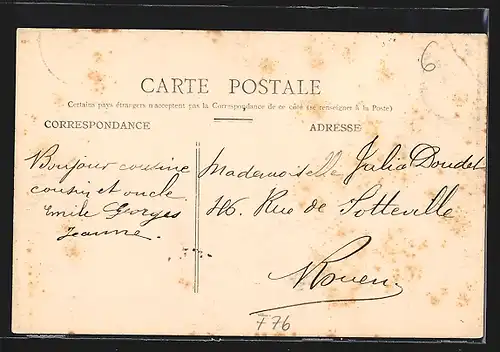 6
CARTE POSTALE
Certains pays étrangers n'acceptent pas la Correspondance de ce côté (se renseigner à la Poste)
CORRESPONDANCE
ADRESSE
Bonjour cousine
cousin et oncle
Emile Georges
Jeanne.
Mademoiselle Julia Doudet
46. Rue de Sotteville
Rouen
F76